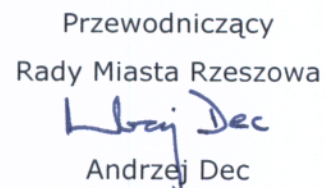 Przewodniczący
Rady Miasta Rzeszowa
Andrzej Dec